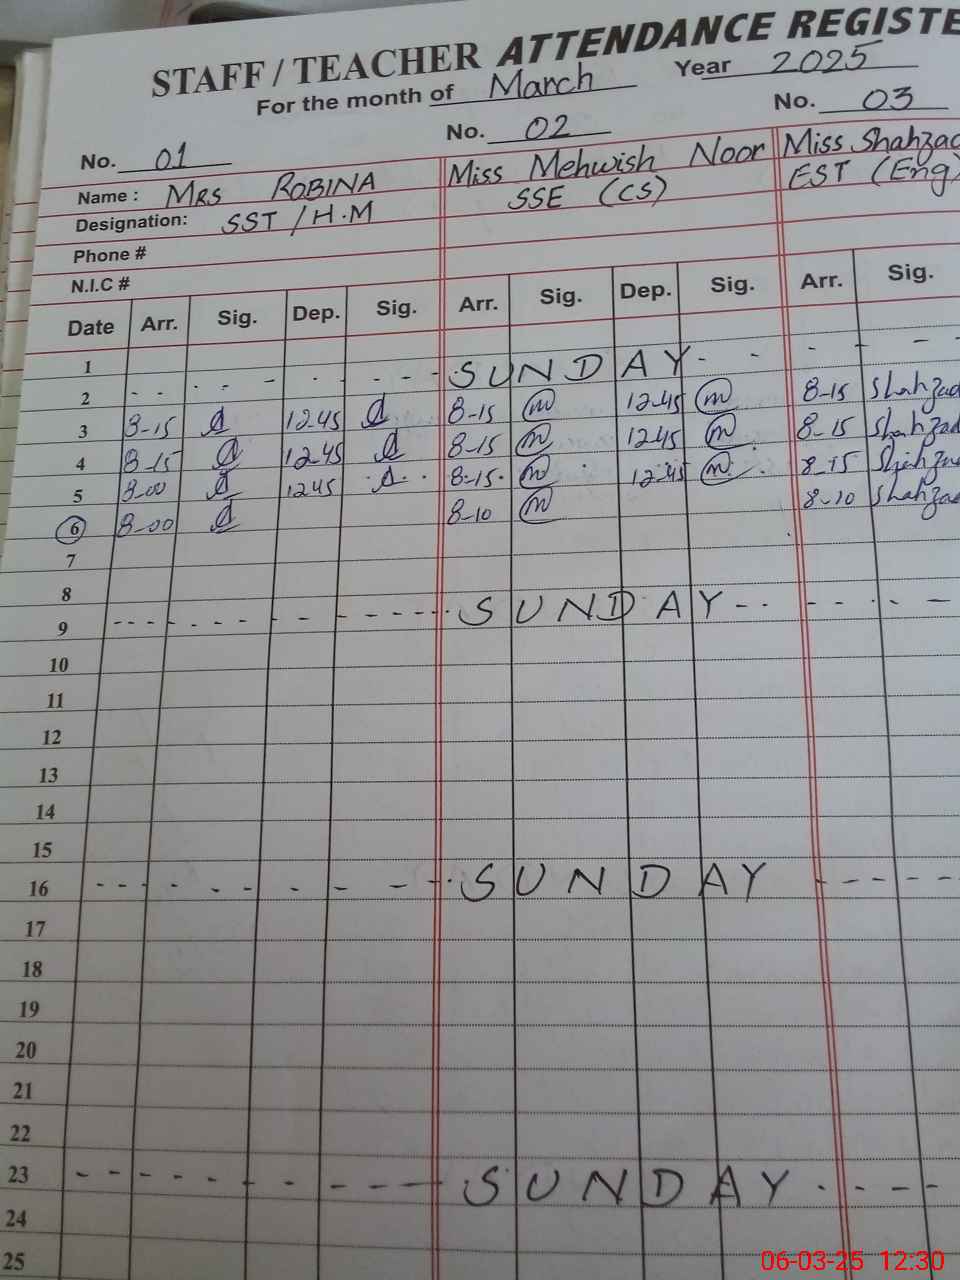 STAFF / TEACHER ATTENDANCE REGISTE
For the month of March Year 2025
No. 01 No. 02 No. 03
Name : MRS ROBINA Miss Mehwish Noor Miss Shahzad
Designation: SST / H.M SSE (CS) EST (Eng)
Phone #
N.I.C #
Date Arr. Sig. Dep. Sig. Arr. Sig. Dep. Sig. Arr. Sig.
1
2 - - - - - - - - - SUNDAY - - - - -
3 8-15 12-45 8-15 m 12-45 m 8-15 Shahzad
4 8-15 12-45 8-15 m 12-45 m 8-15 Shahzad
5 8-00 1245 8-15 m 12-45 m 8-15 Shahzad
6 8-00 8-10 m 8-10 Shahzad
7
8
9 - - - - - - - - - - - - - SUNDAY - - - - - -
10
11
12
13
14
15
16 - - - - - - - - - - SUNDAY - - - - -
17
18
19
20
21
22
23 - - - - - - - - - - SUNDAY - - - -
24
25
06-03-25 12:30